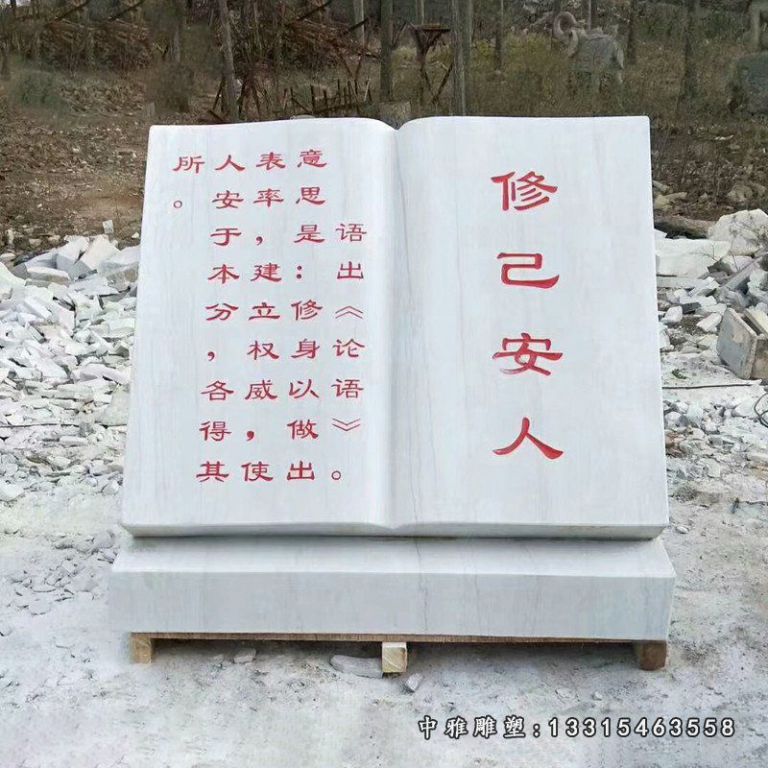 修己安人
语出《论语》。
意思是：修身以做出
表率，建立权威，使
人安于本分，各得其
所。
中雅雕塑:13315463558